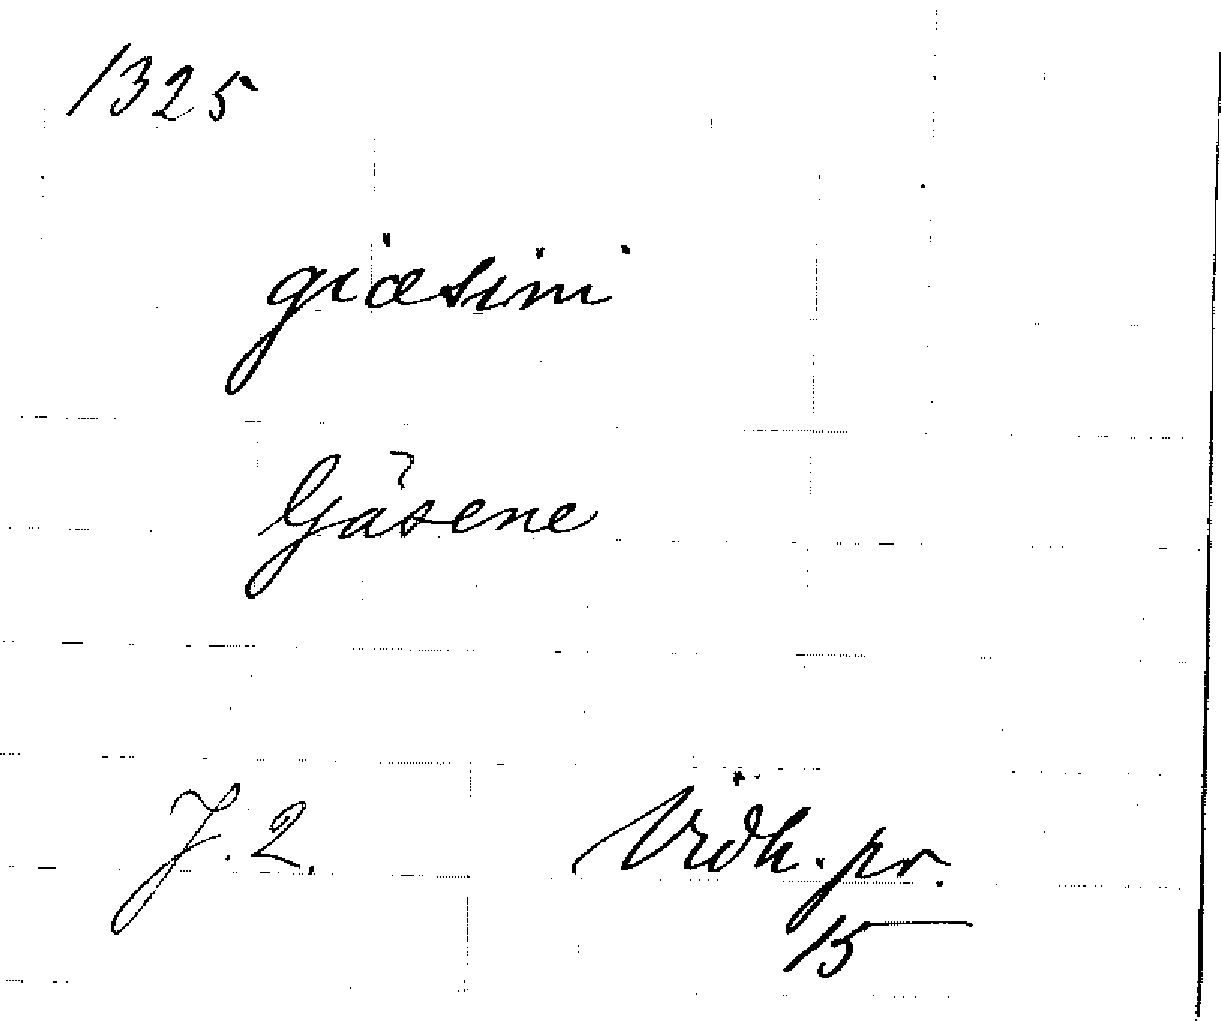 1325
giæsini
Gäsene
J. 2.
Vidh. pr.
15